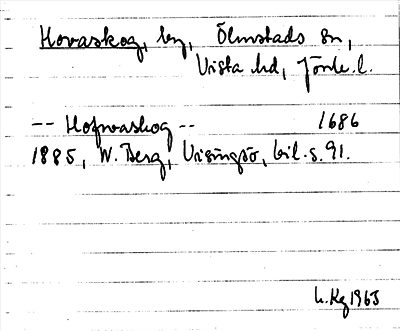 Hovaskog, by, Ölmstads sn,
Vista hd, Jönk. l.
-- Hofwaskog -- 1686
1885, W. Berg, Visingsö, bil. s. 91.
1963